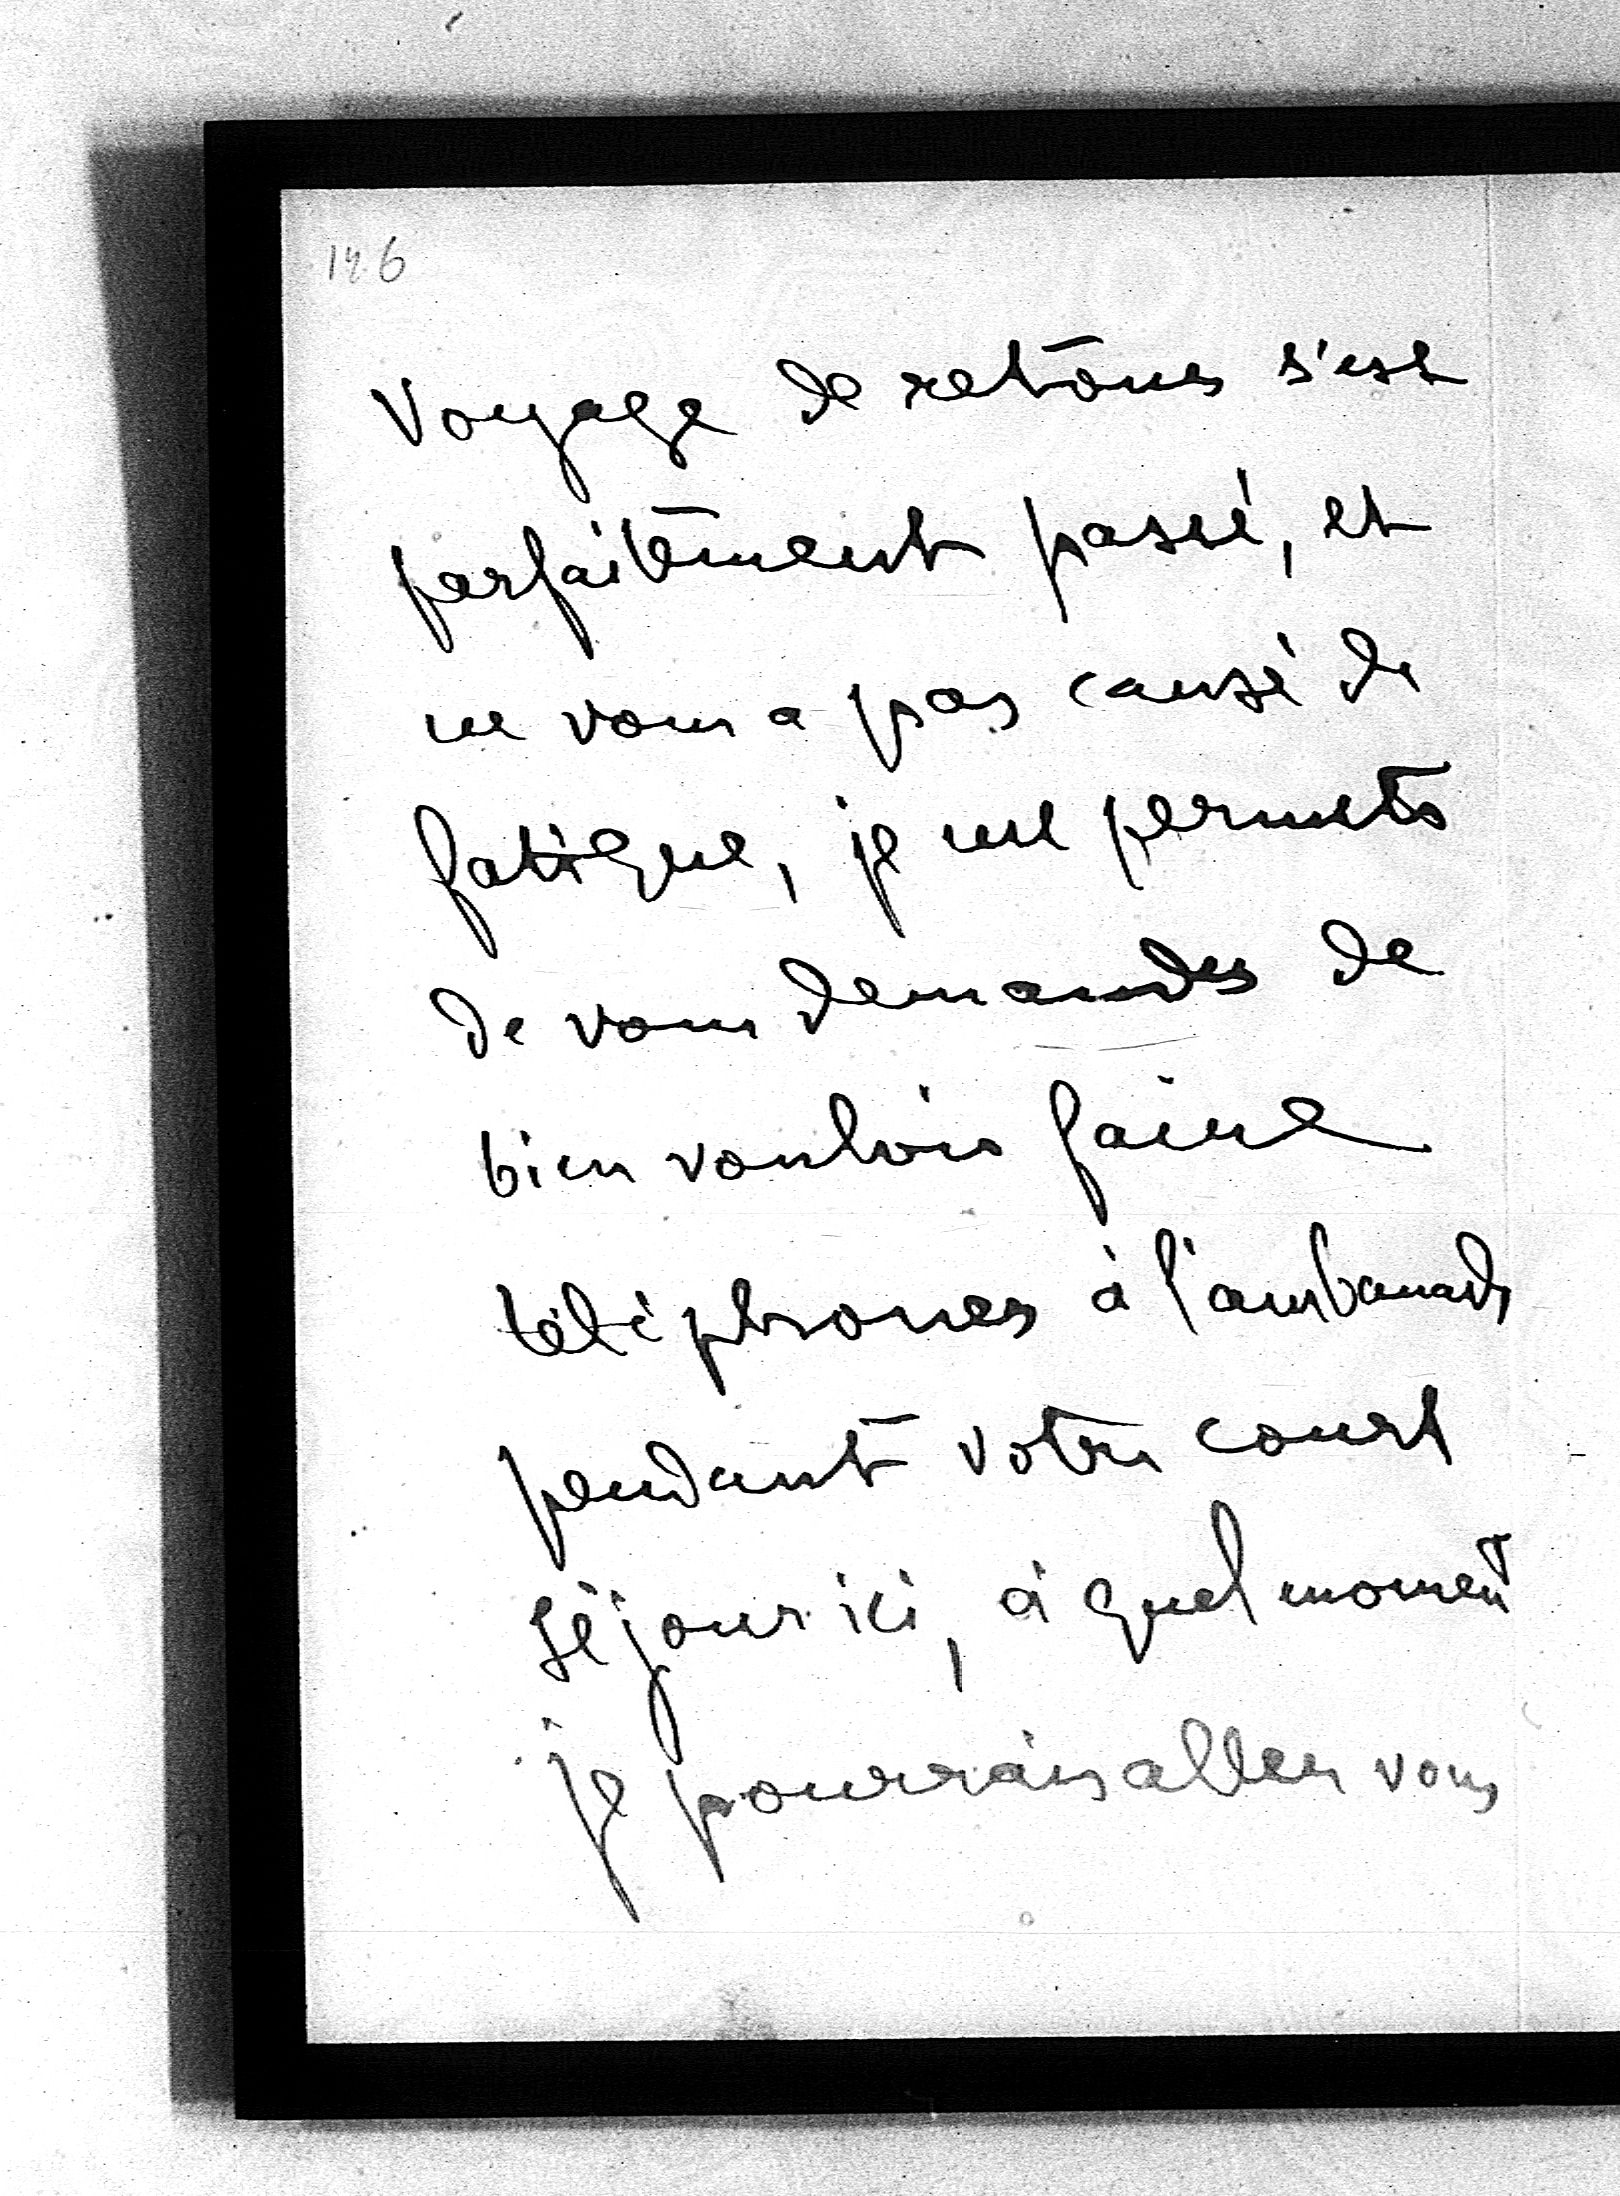 146
voyage de retour s'est
parfaitement passé, et
ne vous a pas causé de
fatigue, je me permets
de vous demander de
bien vouloir faire
téléphoner à l'ambassade
pendant votre court
séjour ici, à quel moment
je pourrais aller vous